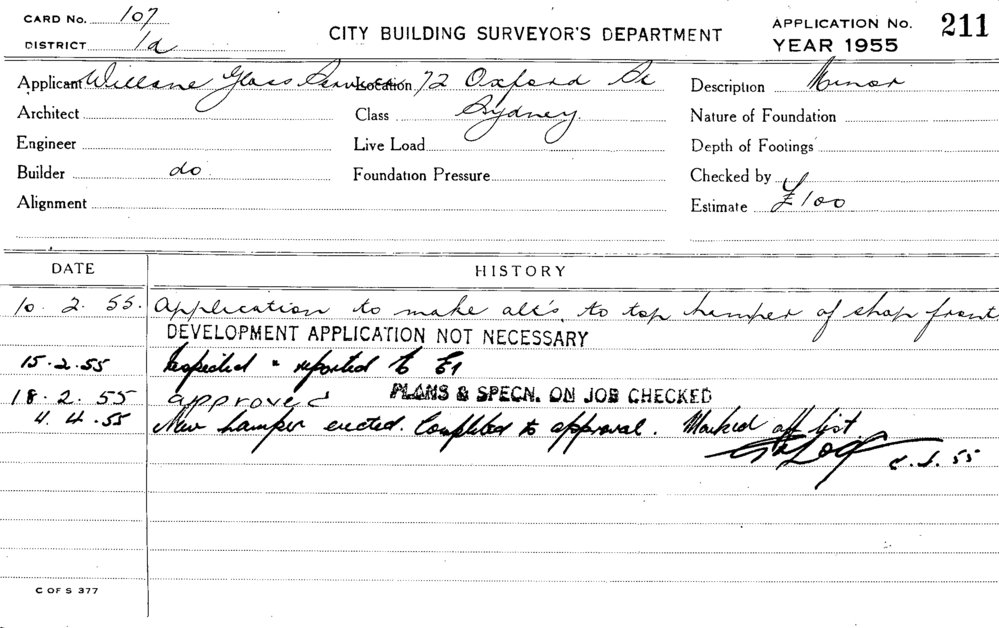 CARD No. 107
DISTRICT 1a
CITY BUILDING SURVEYOR'S DEPARTMENT
APPLICATION No. 211
YEAR 1955
Applicant Willane Glass Services Location 72 Oxford St Description Minor
Architect Class Sydney. Nature of Foundation
Engineer Live Load Depth of Footings
Builder do Foundation Pressure Checked by
Alignment Estimate £100
DATE HISTORY
10. 2. 55. Application to make alt's. to top hamper of shop front.
DEVELOPMENT APPLICATION NOT NECESSARY
15.2.55 Inspected & reported to
18.2.55 approved PLANS & SPECN. ON JOB CHECKED
4.4.55 New hamper erected. Completed to approval. Marked off list.
55
C OF S 377